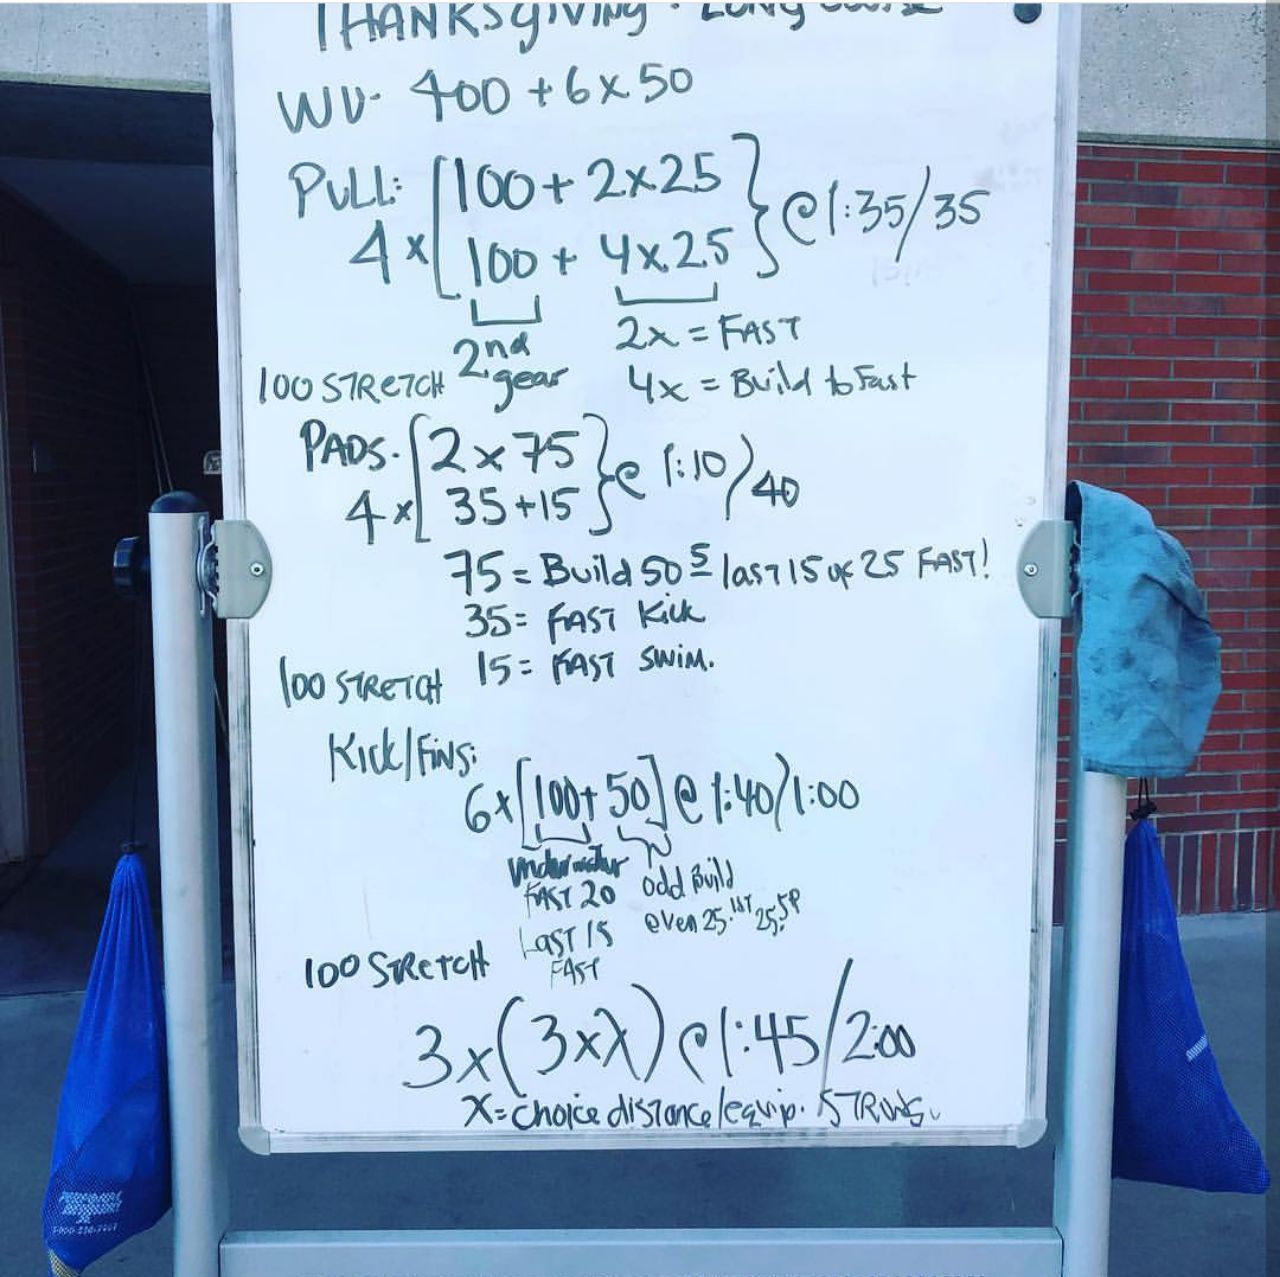 THANKSgIVINg · LONg COURSE
WU- 400 + 6 x 50
PULL: [100 + 2x25
4 x [100 + 4x25 } @ 1:35/35
2nd gear
2x = FAST
4x = Build to Fast
100 STRETCH
PADS. [2 x 75
4 x [35+15 } @ 1:10/40
75 = Build 50 s last 15 of 25 FAST!
35 = FAST Kick
15 = FAST SWIM.
100 STRETCH
Kick/Fins:
6x [100+ 50] @ 1:40/1:00
underwater
FAST 20
LAST 15
FAST
odd Build
even 25.1ST 25.SP
100 STRETCH
3x(3xX) @ 1:45/2:00
X= choice distance/equip. STRONG.